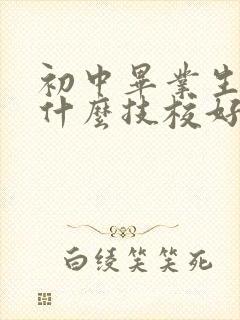 初中畢業生
什麼技校好
白绫笑笑死